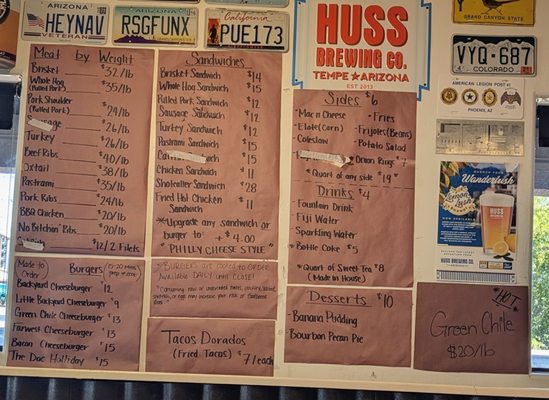 ARIZONA
HEYNAV
VETERAN
RSGFUNX
California
PUE173
GRAND CANYON STATE
ARIZONA
HUSS
BREWING CO.
TEMPE ★ ARIZONA
EST 2013
VYQ·687
COLORADO
AMERICAN LEGION POST 1
PHOENIX, AZ
Wanderlust
HUSS BREWING
Meat by Weight
Brisket $32/lb
Whole Hog $35/lb
(Pulled Pork)
Pork Shoulder
(Pulled Pork) $24/lb
$26/lb
Turkey $26/lb
Beef Ribs $40/lb
Oxtail $38/lb
Pastrami $35/lb
Pork Ribs $24/lb
BBQ Chicken $20/lb
No Bitchin' Ribs $20/lb
$12/2 Filets
Sandwiches
Brisket Sandwich $14
Whole Hog Sandwich $15
Pulled Pork Sandwich $12
Sausage Sandwich $12
Turkey Sandwich $12
Pastrami Sandwich $15
$15
Chicken Sandwich $11
Shotcaller Sandwich $28
Fried Hot Chicken $11
Sandwich
*Upgrade any sandwich or
burger to + $4.00
"PHILLY CHEESE STYLE"
Sides $6
- Mac n Cheese
- Elote (Corn)
- Coleslaw
- Fries
- Frijoles (Beans)
- Potato Salad
- Onion Rings $7
* Quart of any side $19 *
Drinks $4
- Fountain Drink
- Fiji Water
- Sparkling Water
- Bottle Coke $5
* Quart of Sweet Tea $8
(Made in House)
Made to
Order
Burgers
15-20 Mins
Backyard Cheeseburger $12
Little Backyard Cheeseburger $9
Green Chile Cheeseburger $13
Farwest Cheeseburger $13
Bacon Cheeseburger $15
The Doc Holliday $15
* BURGERS ARE COOKED TO ORDER
AVAILABLE DAILY UNTIL CLOSE!
Tacos Dorados
(Fried Tacos) $7/each
Desserts $10
- Banana Pudding
- Bourbon Pecan Pie
HOT
Green Chile
$20/lb